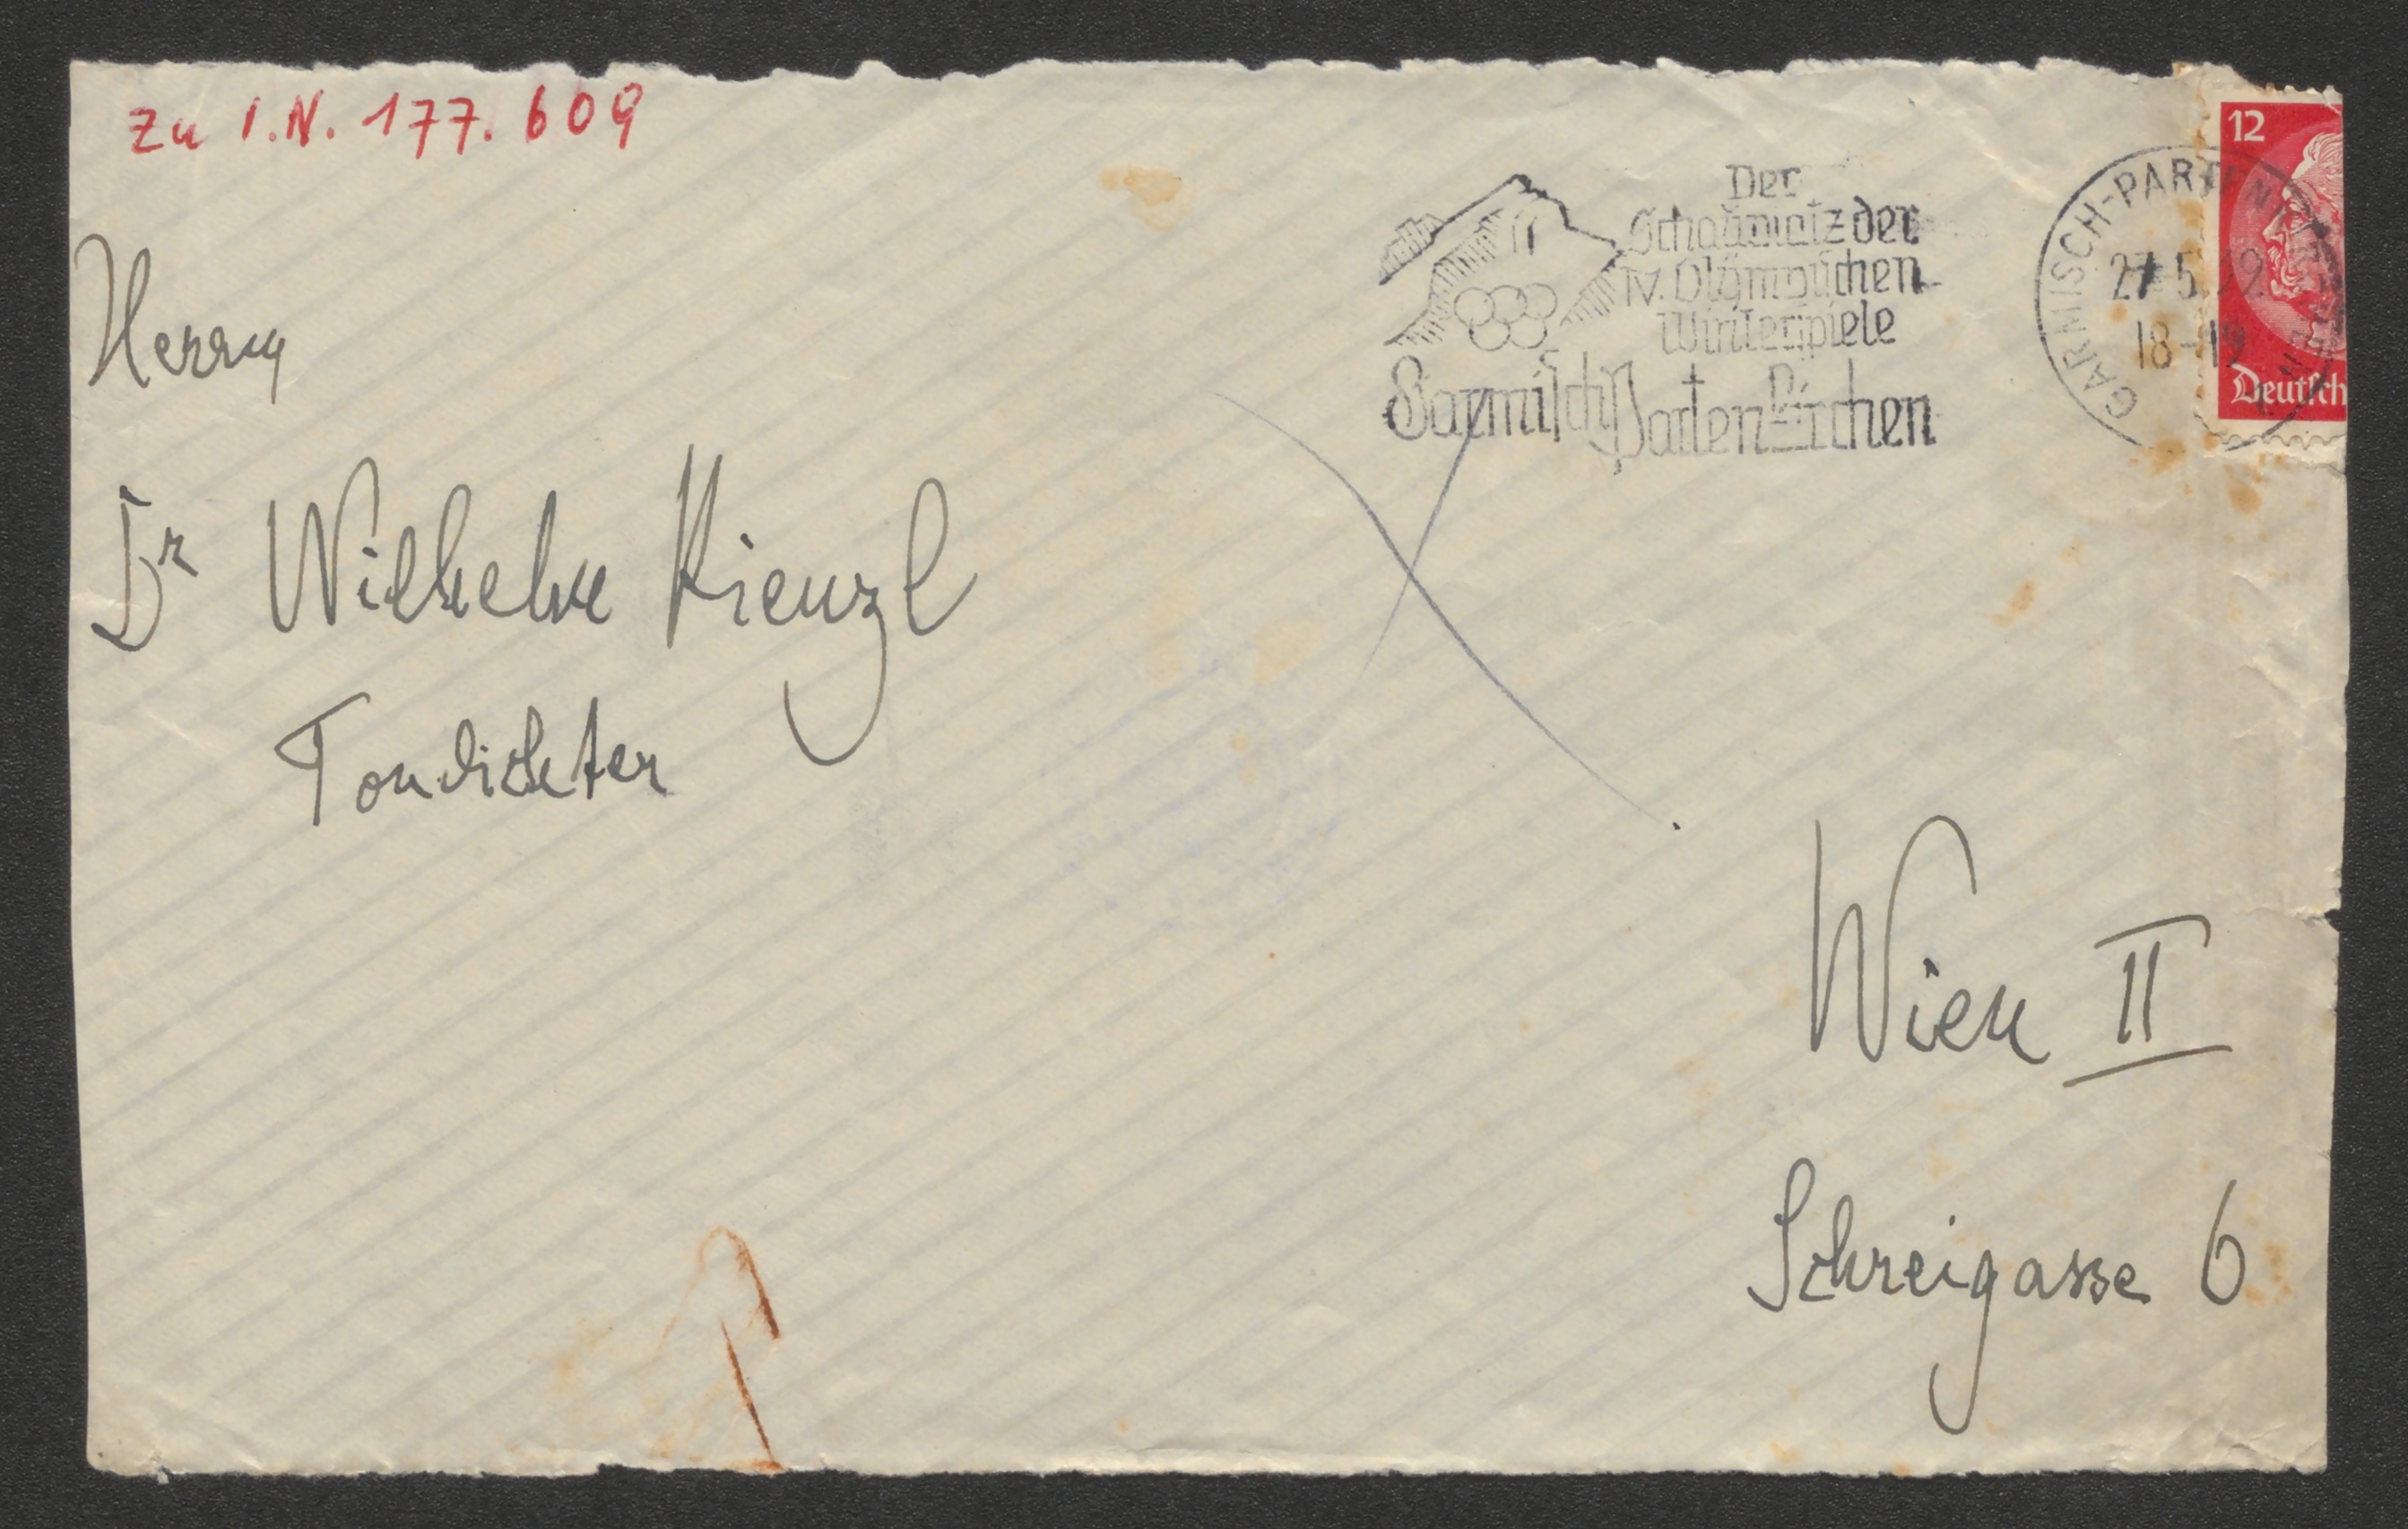 Zu I.N. 177.609
Der
Schauplatz der
IV. Olympischen
Winterspiele
Garmisch Partenkirchen
GARMISCH-PARTENKIRCHEN
27.5
18-19
12
Deutsch
Herrn
Dr Wilhelm Kienzl
Tondichter
Wien II
Schreigasse 6